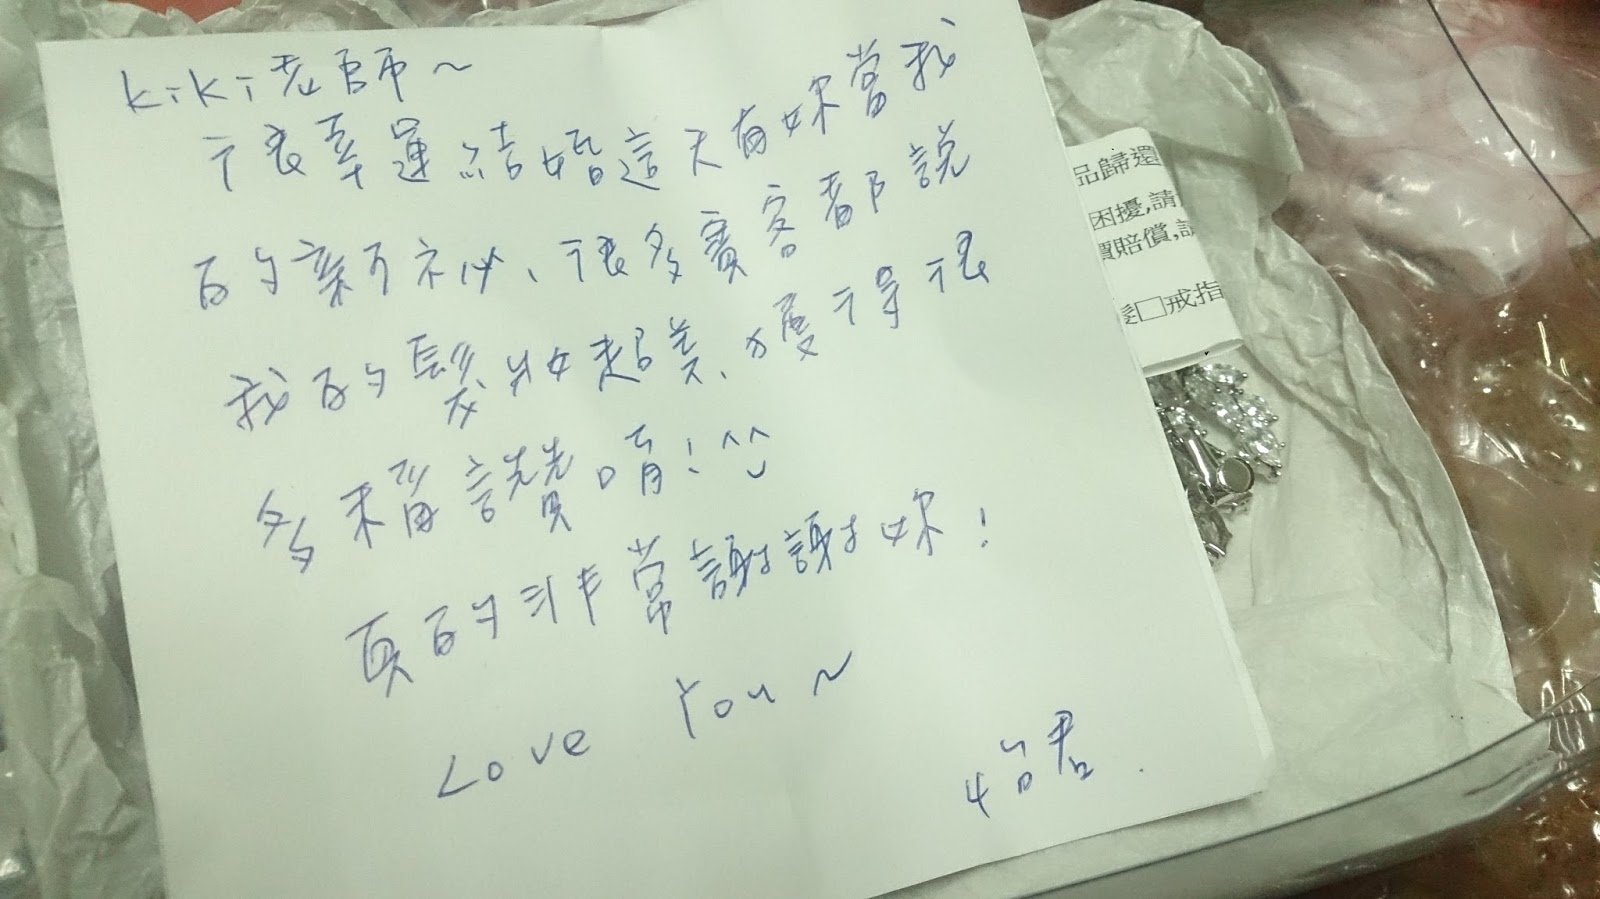 kiki老師~
很幸運結婚這天有妳當我
的新祕、很多賓客都說
我的髮妝超美、獲得很
多稱讚唷!^^
真的非常謝謝妳!
Love You~
怡君.
品歸還
困擾,請
價賠償,
髮□戒指